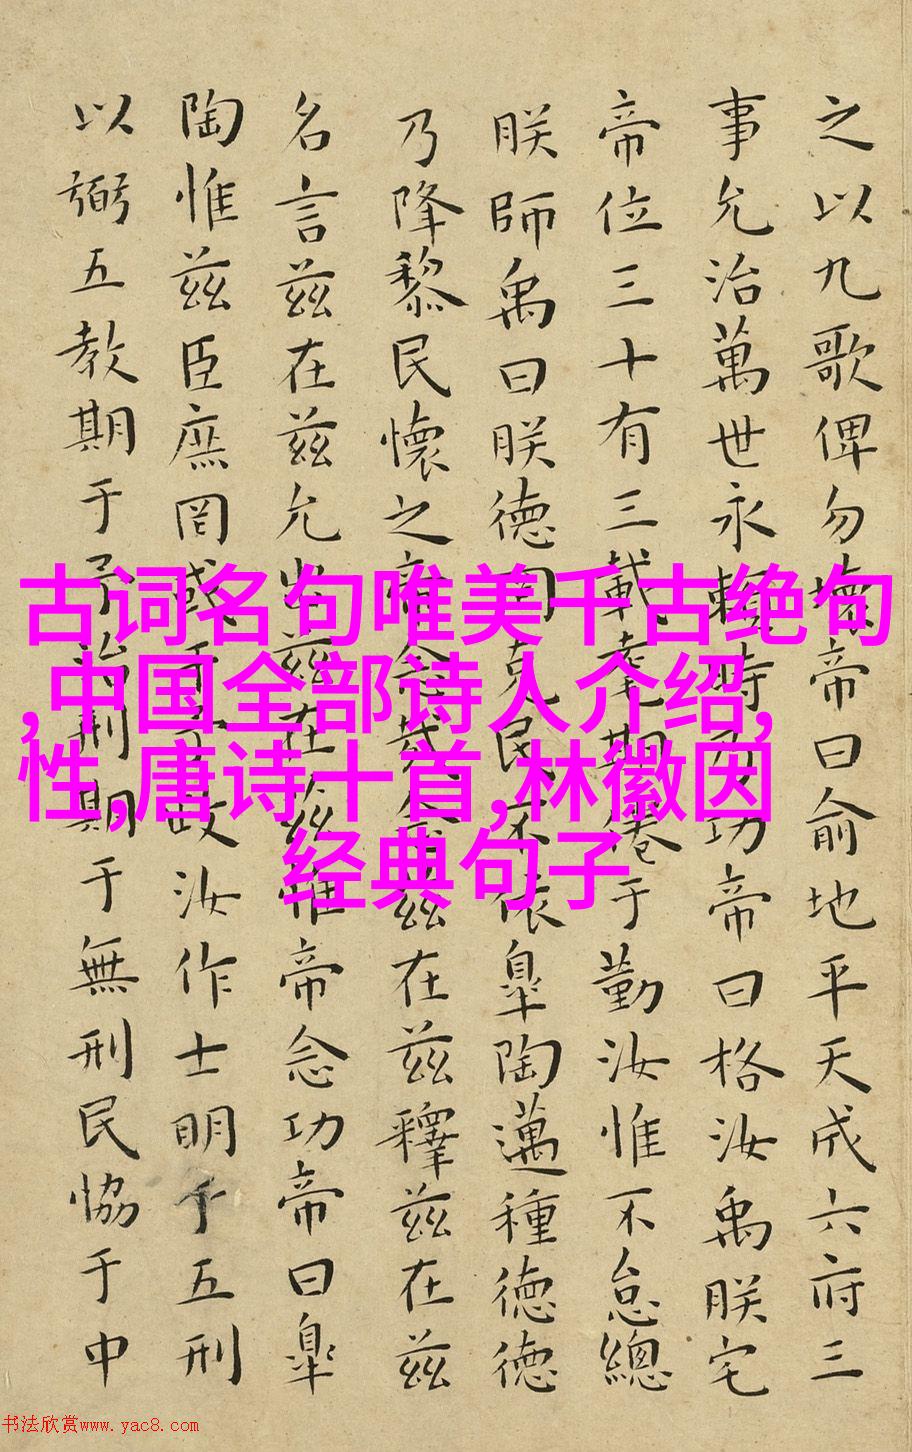 之以九歌俾勿壞帝曰俞地平天成六府三
事允治萬世永賴時乃功帝曰格汝禹朕宅
帝位三十有三載耄期倦于勤汝惟不怠總
朕師禹曰朕德罔克民不依皐陶邁種德德
乃降黎民懷之帝念哉念兹在兹釋兹在兹
名言兹在兹允出兹在兹惟帝念功帝曰皐
陶惟兹臣庶罔或干予政汝作士明于五刑
以弼五教期于予治刑期于無刑民恊于中
古词名句唯美千古绝句
,中国全部诗人介绍,
性,唐诗十首,林徽因
经典句子
书法欣赏www.yac8.com